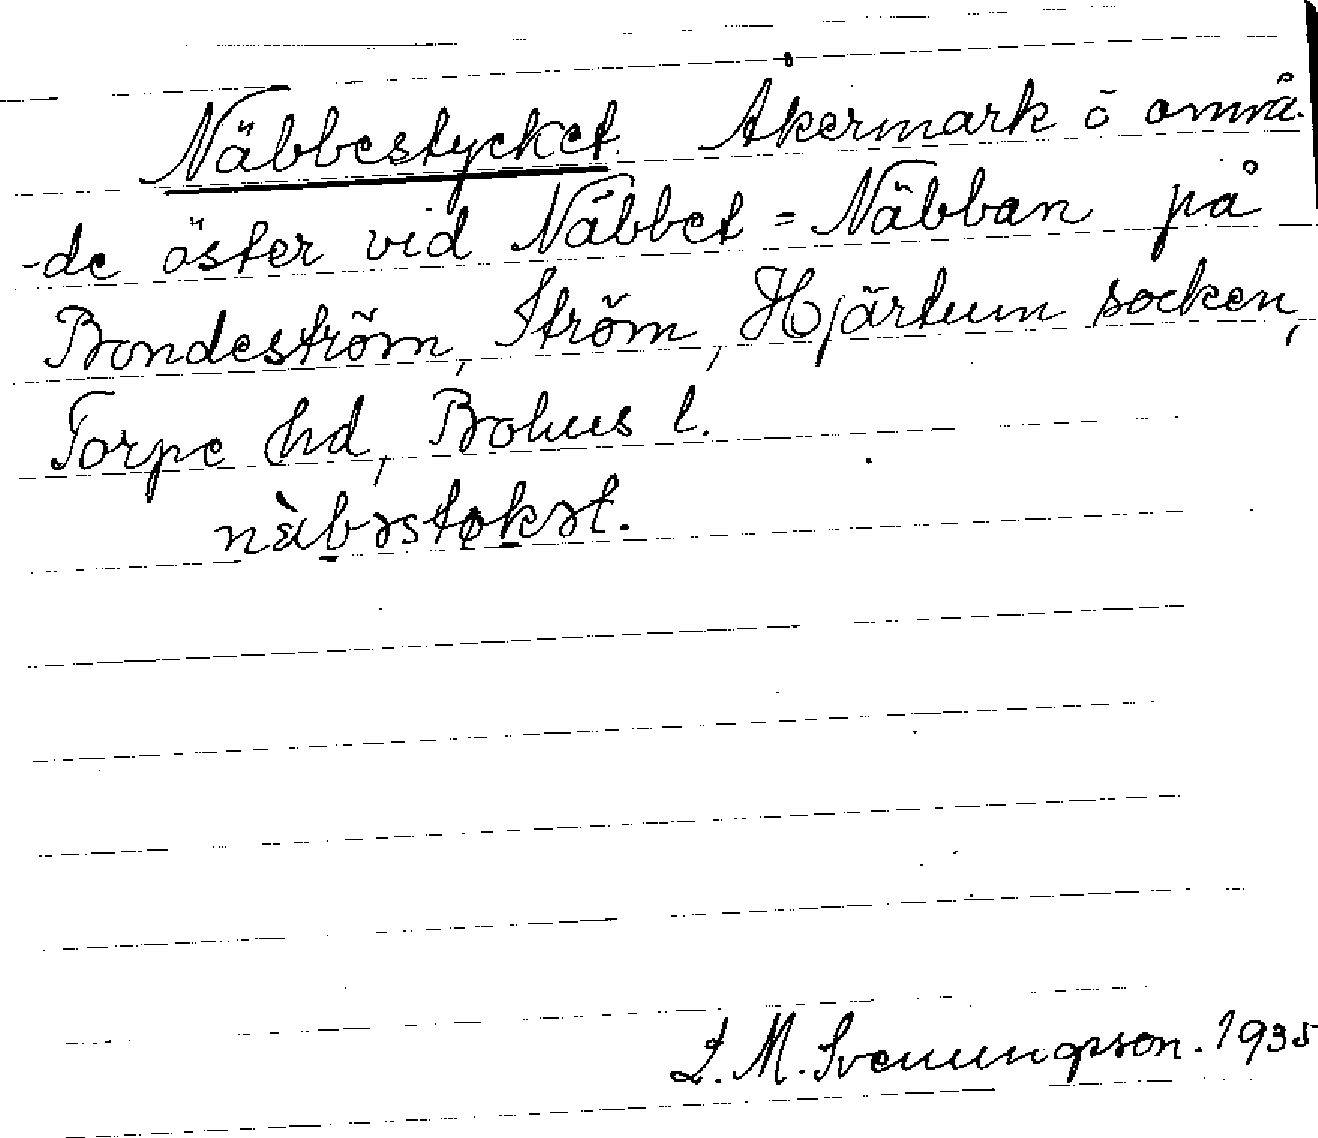 Näbbestycket. Åkermark o områ-
-de öster vid Näbbet = Näbban på
Bondeström, Ström, Hjärtum socken,
Torpe hd, Bohus l.
nàbəstøkət.
L. M. Svenungsson. 1935